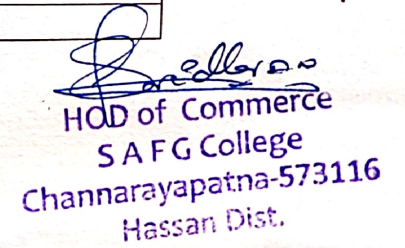 HOD of Commerce
S A F G College
Channarayapatna-573116
Hassan Dist.